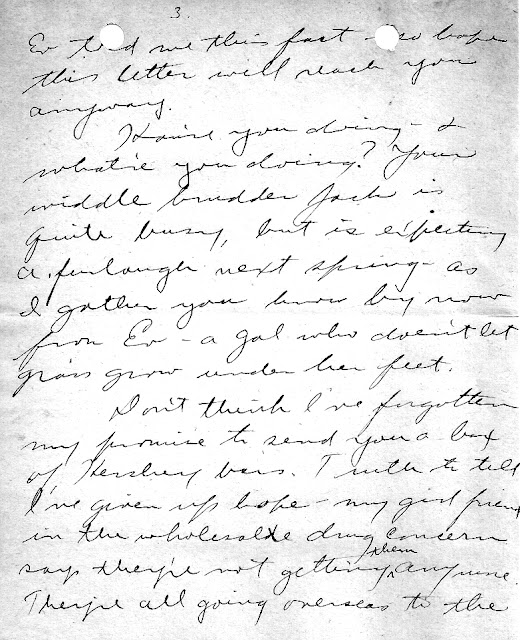 3.
Ev told me this fact - so hope
this letter will reach you
anyway.
How're you doing - &
what're you doing? Your
middle brudder Jack is
quite busy, but is expecting
a furlough next spring - as
I gather you know by now
from Ev - a gal who doesn't let
grass grow under her feet.
Don't think I've forgotten
my promise to send you a box
of Hershey bars. Truth to tell
I've given up hope - my girl friend
in the wholesale drug concern
says they're not getting them any more.
They're all going overseas to the